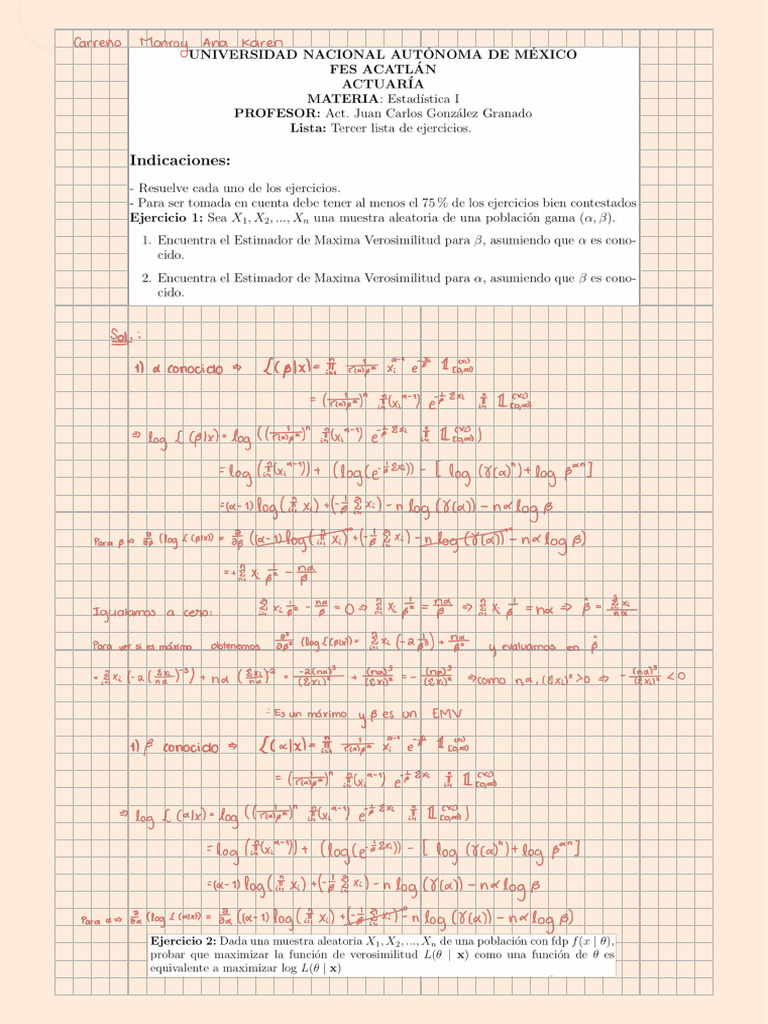 Carreño Monroy Ana Karen
UNIVERSIDAD NACIONAL AUTÓNOMA DE MÉXICO
FES ACATLÁN
ACTUARÍA
MATERIA: Estadística I
PROFESOR: Act. Juan Carlos González Granado
Lista: Tercer lista de ejercicios.
Indicaciones:
- Resuelve cada uno de los ejercicios.
- Para ser tomada en cuenta debe tener al menos el 75 % de los ejercicios bien contestados
Ejercicio 1: Sea X₁, X₂, ..., Xₙ una muestra aleatoria de una población gama (α, β).
1. Encuentra el Estimador de Maxima Verosimilitud para β, asumiendo que α es cono-
cido.
2. Encuentra el Estimador de Maxima Verosimilitud para α, asumiendo que β es cono-
cido.
Sol.:
1) α conocido ⇒ L(β|x) = ∏ᵢ₌₁ⁿ 1/(Γ(α)β^α) xᵢ^(α-1) e^(-xᵢ/β) 𝟙(xᵢ)[0,∞)
= (1/(Γ(α)β^α))ⁿ ∏ᵢ₌₁ⁿ(xᵢ^(α-1)) e^(-1/β Σxᵢ) ∏ᵢ₌₁ⁿ 𝟙(xᵢ)[0,∞)
⇒ log L(β|x) = log((1/(Γ(α)β^α))ⁿ ∏ᵢ₌₁ⁿ(xᵢ^(α-1)) e^(-1/β Σxᵢ) ∏ᵢ₌₁ⁿ 𝟙(xᵢ)[0,∞))
= log(∏ᵢ₌₁ⁿ(xᵢ^(α-1))) + (log(e^(-1/β Σxᵢ)) - [log(γ(α)ⁿ) + log β^(αn)]
= (α-1) log(∏ᵢ₌₁ⁿ xᵢ) + (-1/β Σᵢ₌₁ⁿ xᵢ) - n log(γ(α)) - nα log β
Para β ⇒ ∂/∂β (log L(β|x)) = ∂/∂β ((α-1) log(∏ᵢ₌₁ⁿ xᵢ) + (-1/β Σᵢ₌₁ⁿ xᵢ) - n log(γ(α)) - nα log β)
= + Σᵢ₌₁ⁿ xᵢ 1/β² - nα/β
Igualamos a cero: Σᵢ₌₁ⁿ xᵢ 1/β² - nα/β = 0 ⇒ Σᵢ₌₁ⁿ xᵢ 1/β² = nα/β ⇒ Σᵢ₌₁ⁿ xᵢ 1/β = nα ⇒ β̂ = Σᵢ₌₁ⁿ xᵢ/nα
Para ver si es máximo obtenemos ∂²/∂β² (log L(β|x)) = Σᵢ₌₁ⁿ xᵢ (-2 1/β³) + nα/β² y evaluamos en β̂
= Σᵢ₌₁ⁿ xᵢ (-2 (Σxᵢ/nα)⁻³) + nα (Σxᵢ/nα)⁻² = -2(nα)³/(Σxᵢ)² + (nα)³/(Σxᵢ)² = -(nα)³/(Σxᵢ)² ⇒ como n,α,(Σxᵢ)² > 0 ⇒ -(nα)³/(Σxᵢ)² < 0
∴ Es un máximo y β es un EMV
1) β conocido ⇒ L(α|x) = ∏ᵢ₌₁ⁿ 1/(Γ(α)β^α) xᵢ^(α-1) e^(-xᵢ/β) 𝟙(xᵢ)[0,∞)
= (1/(Γ(α)β^α))ⁿ ∏ᵢ₌₁ⁿ(xᵢ^(α-1)) e^(-1/β Σxᵢ) ∏ᵢ₌₁ⁿ 𝟙(xᵢ)[0,∞)
⇒ log L(α|x) = log((1/(Γ(α)β^α))ⁿ ∏ᵢ₌₁ⁿ(xᵢ^(α-1)) e^(-1/β Σxᵢ) ∏ᵢ₌₁ⁿ 𝟙(xᵢ)[0,∞))
= log(∏ᵢ₌₁ⁿ(xᵢ^(α-1))) + (log(e^(-1/β Σxᵢ)) - [log(γ(α)ⁿ) + log β^(αn)]
= (α-1) log(∏ᵢ₌₁ⁿ xᵢ) + (-1/β Σᵢ₌₁ⁿ xᵢ) - n log(γ(α)) - nα log β
Para α ⇒ ∂/∂α (log L(α|x)) = ∂/∂α ((α-1) log(∏ᵢ₌₁ⁿ xᵢ) + (-1/β Σᵢ₌₁ⁿ xᵢ) - n log(γ(α)) - nα log β)
Ejercicio 2: Dada una muestra aleatoria X₁, X₂, ..., Xₙ de una población con fdp f(x | θ),
probar que maximizar la función de verosimilitud L(θ | x) como una función de θ es
equivalente a maximizar log L(θ | x)